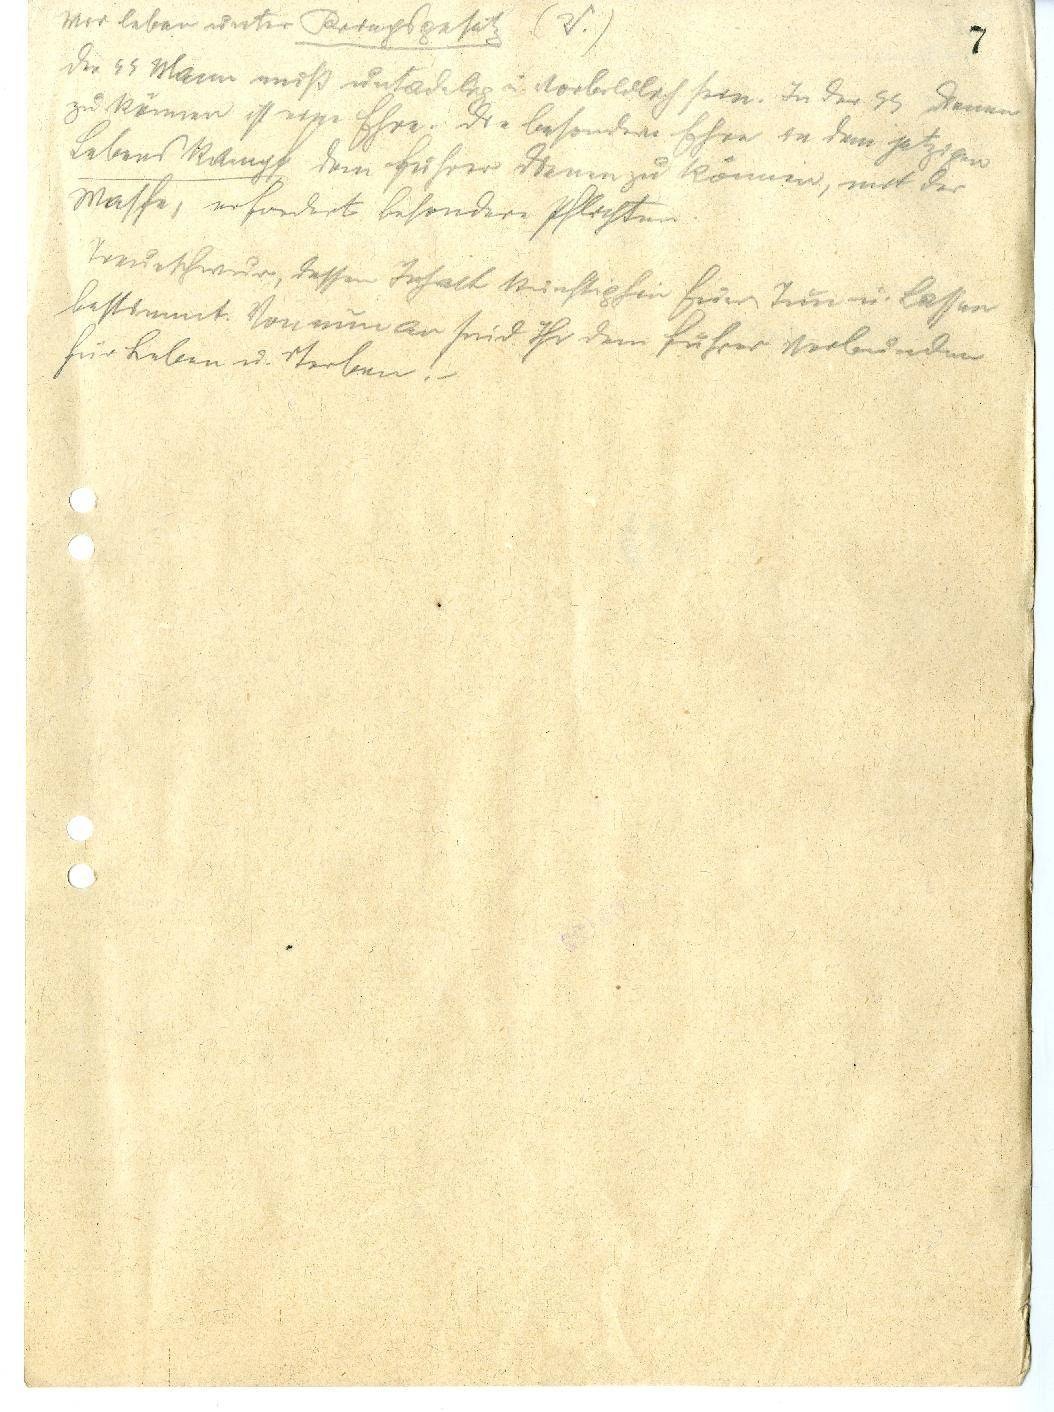 Wir leben unter Kriegsgesetz (V.)
7
Der SS Mann muß untadelig u. vorbildlich sein. In der SS dienen
zu können ist eine Ehre. Die besondere Ehre in dem jetzigen
Lebenskampf dem Führer dienen zu können, mit der
Waffe, erfordert besondere Pflichten.
Treueschwur, dessen Inhalt künftighin Euer Tun u. Lassen
bestimmt. Von nun an seid Ihr dem Führer verbunden
für Leben u. Sterben.